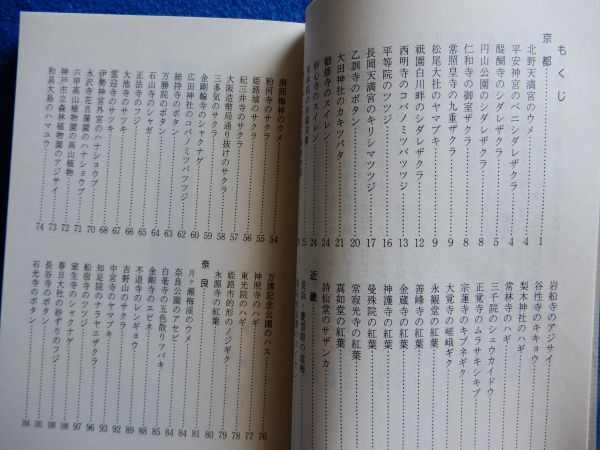 もくじ
京都
北野天満宮のウメ……1
平安神宮のベニシダレザクラ……4
醍醐寺のシダレザクラ……4
円山公園のシダレザクラ……5
仁和寺の御室ザクラ……8
常照皇寺の九重ザクラ……9
松尾大社のヤマブキ……9
祇園白川畔のシダレザクラ……12
西明寺のコバノミツバツツジ……13
平等院のツツジ……16
長岡天満宮のキリシマツツジ……17
乙訓寺のボタン……20
大田神社のカキツバタ……21
勧修寺のスイレン……24
妙心寺のスイレン……24
岩船寺のアジサイ
谷性寺のキキョウ
梨木神社のハギ
常林寺のハギ
三千院のシュウカイドウ
正覚寺のムラサキシキブ
宗蓮寺のキブネギク
大覚寺の嵯峨ギク
永観堂の紅葉
善峰寺の紅葉
金蔵寺の紅葉
神護寺の紅葉
曼殊院の紅葉
常寂光寺の紅葉
真如堂の紅葉
詩仙堂のサザンカ
近畿
南部梅林のウメ……54
粉河寺のサクラ……55
姫路城のサクラ
紀三井寺のサクラ
大阪造幣局通り抜けのサクラ
三多気のサクラ
金剛輪寺のシャクナゲ
広田神社のコバノミツバツツジ
総持寺のボタン
万勝院のボタン
石山寺のシャガ
正法寺のフジ
大池寺のサツキ
雲迎寺のサツキ
伊勢神宮外宮のハナショウブ
永沢寺花菖蒲園のハナショウブ
六甲高山植物園の高山植物……72
神戸市立森林植物園のアジサイ……73
和具大島のハマユウ……74
万博記念公園のハス……76
神照寺のハギ……77
東光院のハギ……78
姫路市的形のノジギク……79
永源寺の紅葉……80
奈良
月ヶ瀬梅渓のウメ……81
奈良公園のアセビ……84
白毫寺の五色散りツバキ……84
金剛寺のエビネ……85
不退寺のレンギョウ……88
吉野山のサクラ……89
中宮寺のヤマブキ……92
知足院のナラヤエザクラ……93
船宿寺のツツジ……96
室生寺のシャクナゲ……97
春日大社の砂ずりのフジ……100
長谷寺のボタン……101
石光寺のボタン……104